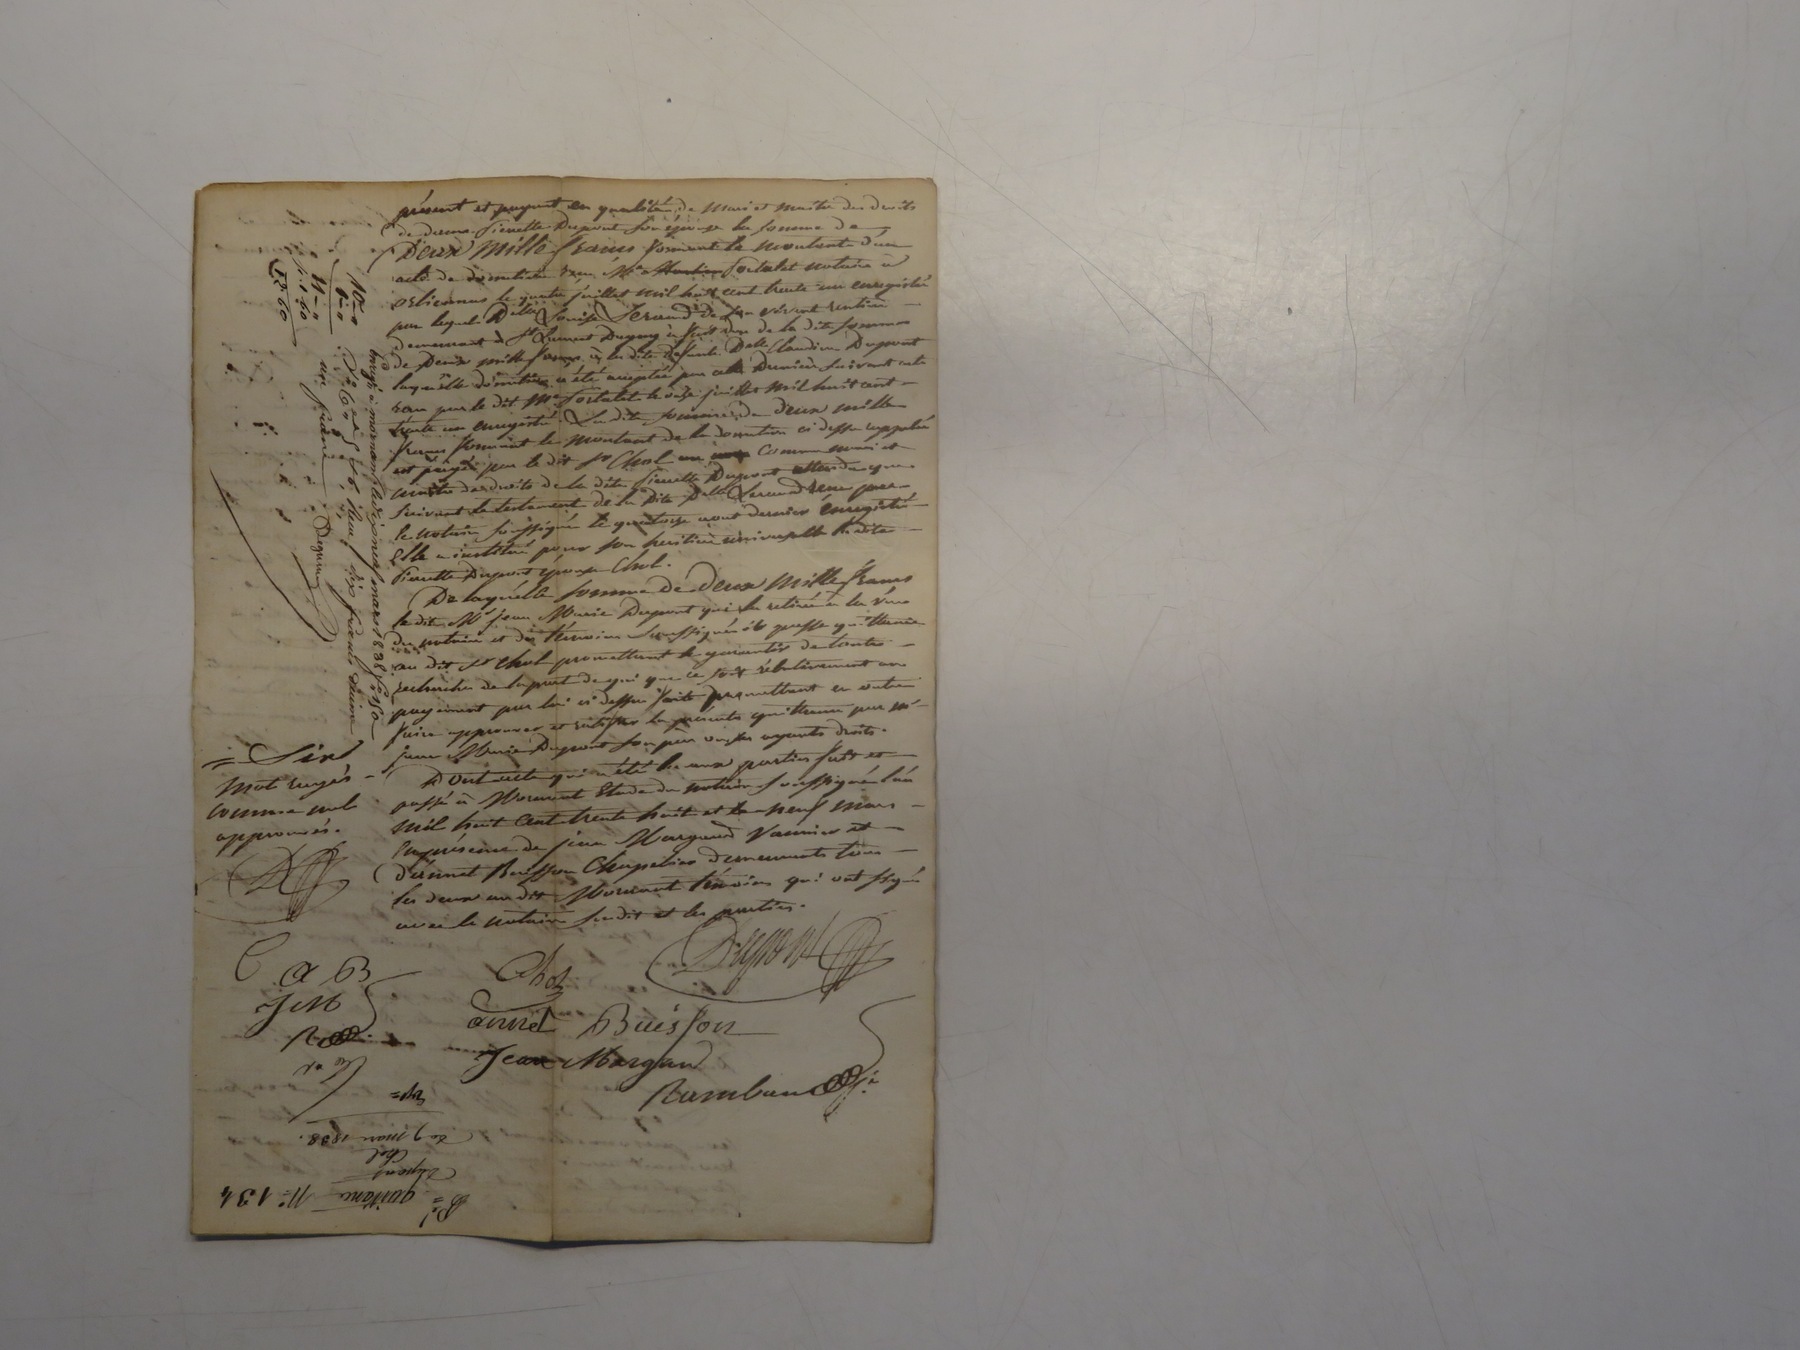 présent et payant en qualité de mari et maître des droits
de dame Pierrette Dupont son épouse la somme de
Deux Mille francs formant le montant d'un
acte de donation reçu Me Portalet notaire à
le quatre juillet mil huit cent trente un enregistré
par lequel Delle Louise de son vivant rentière
demeurant à St Laurent Dagny a fait don de la dite somme
de Deux mille francs à la dite défunte Delle Claudine Dupont
laquelle donation a été acceptée par cette dernière suivant acte
reçu par le dit Me Portalet le onze juillet mil huit cent
trente un enregistré La dite somme de deux mille
francs formant le montant de la donation ci dessus rappelée
est payée par le dit Sr Chol comme mari et
maître des droits de la dite Pierrette Dupont attendu que
suivant le testament de la dite Delle reçu par
le notaire soussigné le quatorze aout dernier enregistré
Elle a institué pour son héritière universelle la dite
Pierrette Dupont épouse Chol.
De laquelle somme de deux Mille francs
le dit Mr jean Marie Dupont qui l'a retirée à la vue
du notaire et des témoins soussignés passe quittance
au dit Sr Chol promettant le garantir de toute
recherche de la part de qui que ce soit relativement au
payement par lui ci dessus fait promettant en outre
faire approuver et ratifier la présente quittance par Mr
jean Marie Dupont son père ou ses ayants droits.
Dont acte qui a été lu aux parties fait et
passé à Mornant Etude du notaire soussigné l'an
mil huit cent trente huit et le neuf mars
en présence de jean Margand Vannier et
d'ennet Buisson Chapelier demeurants tous
les deux au dit Mornant témoins qui ont signé
avec le notaire susdit et les parties.
Six
mot rayés
comme nul
approuvés.
Dupont
C
a B
Chol
J M
ennet Buisson
Jean Margand
Rambaud
10-0
1-0
11-0
1-10
12-10
à mornant le dix neuf mars 1838 fo 50
reçu dix francs
un franc
Dn
Quittance No 134
Dupont
Chol
Du 9 mars 1838.
Exp=